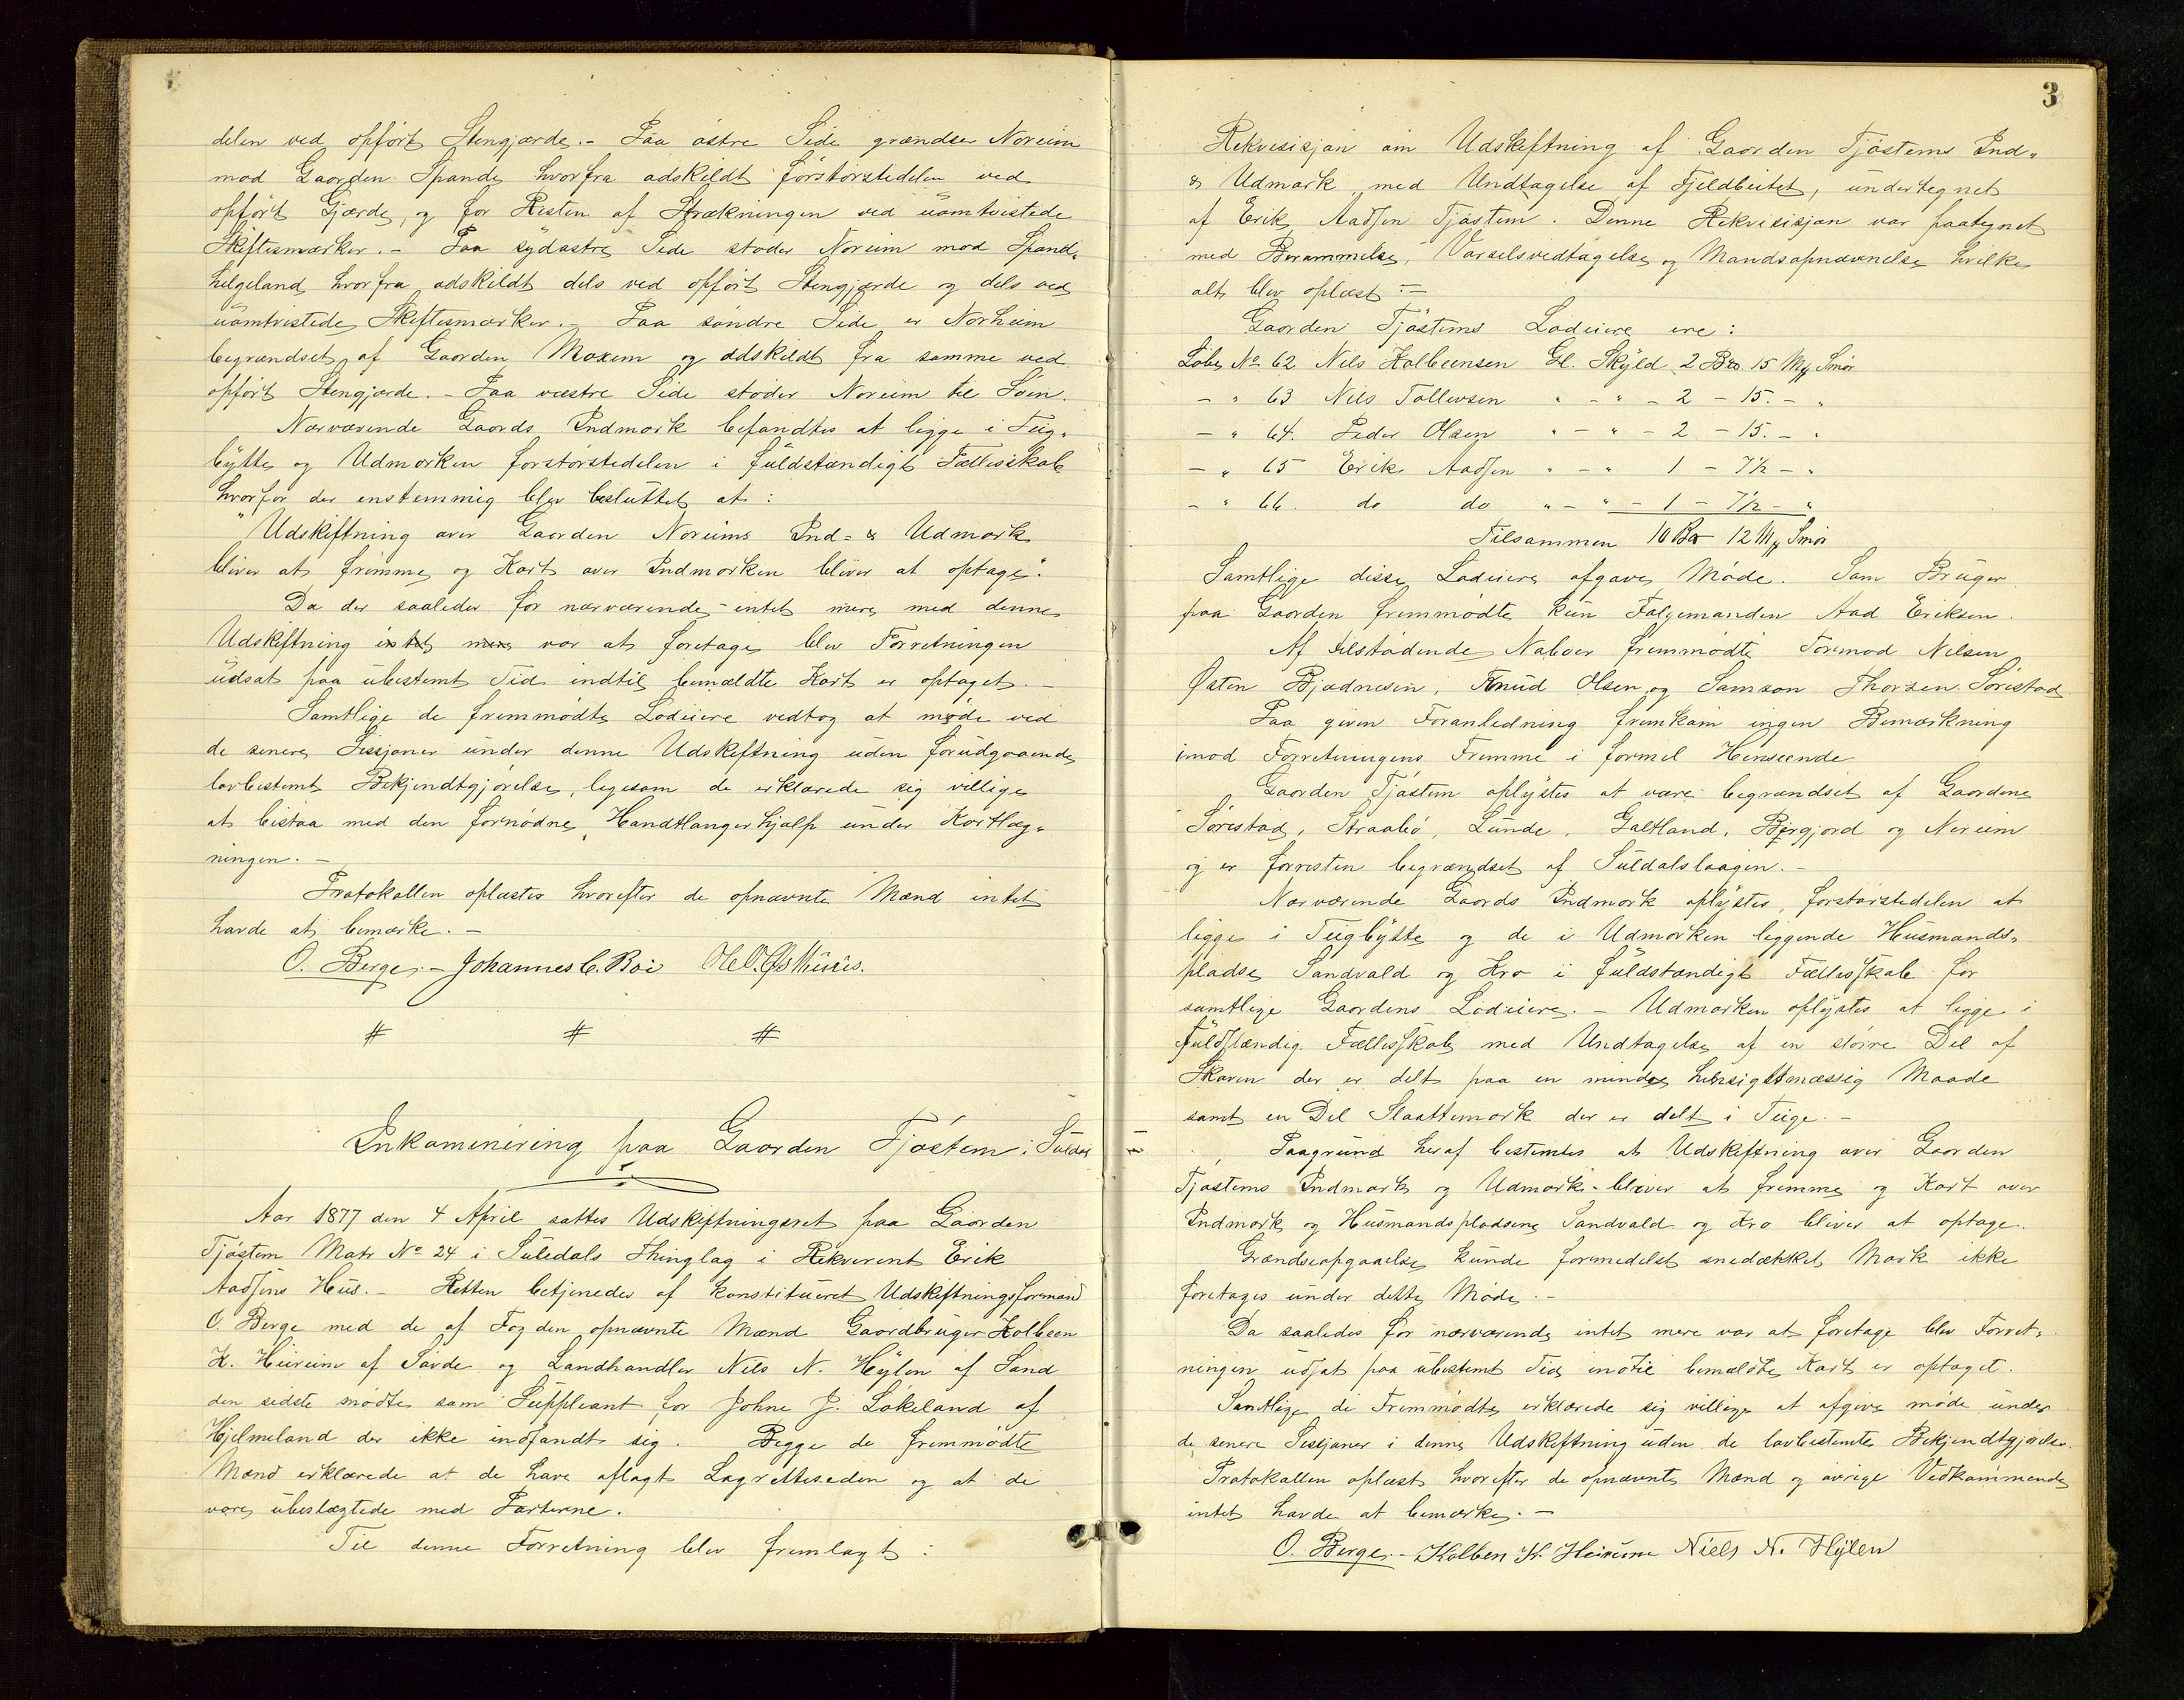 delen ved opført Stengjærde. - Paa østre Side grændser Noreim
mod Gaarden Spande hvorfra adskildt förstörstedelen ved
opført Gjærde, og for Resten af Strækningen ved uomtvistede
Skiftesmærker. - Paa sydøstre Side støder Noreim mod Spand-
helgeland hvorfra adskildt dels ved opført Stengjærde og dels ved
uomtvistede Skiftesmærker. - Paa søndre Side er Norheim
begrændset af Gaarden Moxem og adskildt fra samme ved
opført Stengjærde. - Paa vestre Side støder Noreim til Søen.
Nærværende Gaards Indmark befandtes at ligge i Teig-
bytte og Udmarken forstørstedelen i fuldstændigt Fællesskab
hvorfor der enstemmig blev besluttet at:
"Udskiftning over Gaarden Noreims Ind- & Udmark
bliver at fremme og Kart over Indmarken bliver at optage".
Da der saaledes for nærværende intet mere med denne
Udskiftning intet mere var at foretage blev Forretningen
udsat paa ubestemt Tid indtil bemældte Kart er optaget. -
Samtlige de fremmødte Lodeiere vedtog at møde ved
de senere Sessjoner under denne Udskiftning uden forudgaaende
lovbestemt Bekjendtgjørelse, ligesom de erklærede sig villige
at bistaa med den fornødne Handtlangerhjælp under Kartlæg-
ningen. -
Protokollen oplæstes hvorefter de opnævnte Mænd intet
havde at bemærke. -
O. Berge. - Johannes C. Boe
# # #
Inkaminering paa Gaarden Tjøstem i Suldal
Aar 1877 den 4 April sattes Udskiftningsret paa Gaarden
Tjøstem Matr No 24 i Suledals Thinglag i Rekvirent Erik
Aadsens Hus. - Retten betjenedes af konstitueret Udskiftningsformand
O. Berge med de af Fogden opnævnte Mænd Gaardbruger Kolbeen
K. Heireim af Søvde og Landhandler Nils N. Hylen af Sand
den sidste mødte som Suppleant for Johne J. Løkeland af
Hjelmeland der ikke indfandt sig. Begge de fremmødte
Mænd erklærede at de have aflagt Lagretteseden og at de
vare ubeslægtede med Parterne.
Til denne Forretning blev fremlagt:
3
Rekvisisjon om Udskiftning af Gaarden Tjøstems Ind-
& Udmark, med Undtagelse af Fjeldbeitet, undertegnet
af Erik Aadsen Tjøstem. Denne Rekvisisjon var paategnet
med Berammelse, Varselsvedtagelse og Mandsopnævnelse hvilke
alt blev oplæst: -
Gaarden Tjøstems Lodeiere ere:
Løbe No 62 Nils Kolbeensen Gl. Skyld 2 Bro 15 Mg Smør
- " 63 Nils Tollevsen " - " - 2 - 15. - "
- " 64. Peder Olsen " - " - 2 - 15. - "
- " 65 Erik Aadsen " - " 1 - 7½ - "
- " 66. do do " - " - 1 - 7½ - "
Tilsammen 10 Bro 12 Mg Smør
Samtlige disse Lodeiere afgave Møde. Som Bruger
paa Gaarden fremmødte kun Følgemanden Aad Eriksen.
Af tilstødende Naboer fremmødte Tormod Nelsen
Østen Bjødnesen, Knud Olsen og Samson Thorsen Sørestad
Paa given Foranledning fremkom ingen Bemærkning
imod Forretningens Fremme i formel Henseende
Gaarden Tjøstem oplystes at være begrændset af Gaardene
Sørestad, Straabø, Lunde, Galtland, Bergjord og Noreim
og er forresten begrændset af Suldalslaagen. -
Nærværende Gaards Indmark oplystes, forstørstedelen at
ligge i Teigbytte og de i Udmarken liggende Husmands-
pladse Sandvald og Kro i fuldstændigt Fællesskab for
samtlige Gaardens Lodeiere. - Udmarken oplystes at ligge i
fuldstændig Fællesskab med Undtagelse af en større Del af
Skoven der er delt paa en mindre hensigtsmæssig Maade
samt en Del Slaattemark der er delt i Teige. -
Paagrund heraf bestemtes at Udskiftning over Gaarden
Tjøstems Indmark og Udmark bliver at fremme og Kart over
Indmark og Husmandspladsene Sandvald og Kro bliver at optage.
Grændseopgaaelse kunde formedelst snedækket Mark ikke
foretages under dette Møde. -
Da saaledes for nærværende intet mere var at foretage blev Forret-
ningen udsat paa ubestemt Tid indtil bemældte Kart er optaget.
Samtlige de Fremmødte erklærede sig villige at afgive møde under
de senere Sessjoner i denne Udskiftning uden de lovbestemte Bekjendtgjørelse.
Protokollen oplæst hvorefter de opnævnte Mænd og øvrige Vedkommende
intet havde at bemærke. -
O. Berge. - Kolben K. Heireim Niels N. Hylen